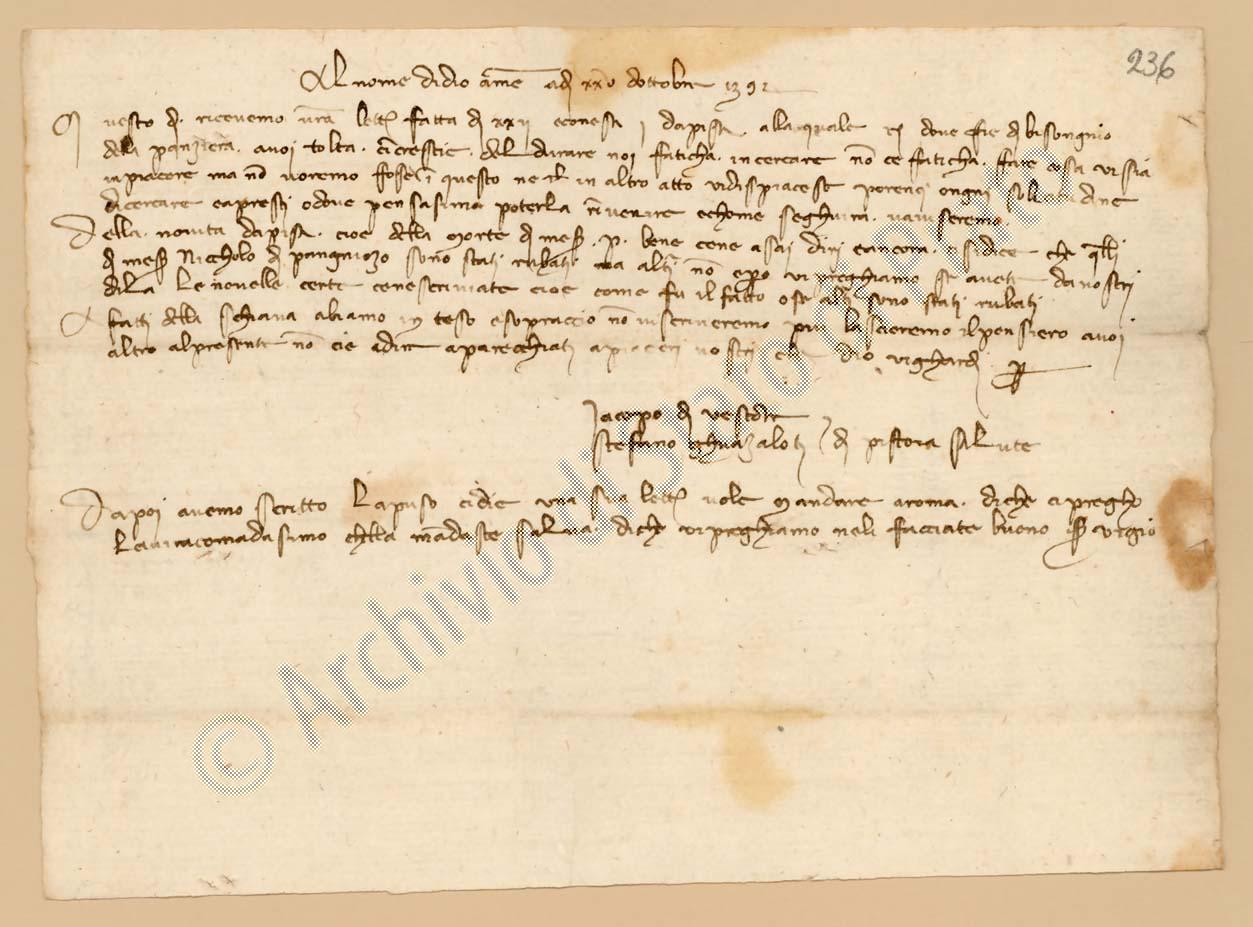 236
Al nome di dio ame adi xxv dottobre 1392
Questo di ricevemo vra lettera fatta di xxii e con essa j da pisa alla quale rispondere fie di bisongnio
dela panziera a voi tolta cincrescie del durare noi faticha in cercare non ce faticha fare cosa vi sia
in piacere ma non voremo fose in questo ne in altro atto vi dispiacese poremci ongni solecitudine
di cercare e apresti o dove pensasimo poterla rinvenire e chome seghuira n aviseremo
Della novita da pisa cioe della morte di meser p bene cene asai dini e ancora si dice che queli
di meser Niccholo di pangniozo sono stati rubati ma altri non e pero vi preghiamo se avete da nostri
di la le novelle certe cene scriviate cioe come fu il fatto o se altri sono stati rubati
A fatti della schiava abiamo inteso e sopraccio non vi scriveremo piu lascieremo il pensiero a voi
altro al presente non cie a dire aparecchiati a piaceri vostri che dio vi ghardi
Jacopo di
Stefano ghuazaloti di pistoia salute
Dapoi avemo scritto Lapuso ci die una sua lettera vole mandare a roma di che ci pregho
la vi racomadasimo chella mandaste salva di che vi preghiamo neli facciate buono servigio
© Archivio di Stato di Prato